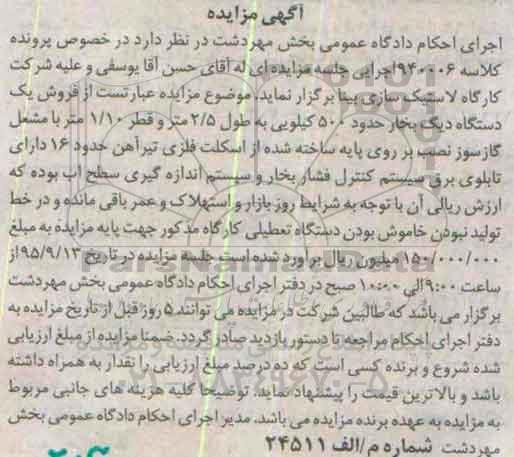 آگهی مزایده
اجرای احکام دادگاه عمومی بخش مهردشت در نظر دارد در خصوص پرونده
کلاسه ۹۴۰۰۰۶ اجرایی جلسه مزایده ای له آقای حسن آقا یوسفی و علیه شرکت
کارگاه لاستیک سازی بیتا برگزار نماید. موضوع مزایده عبارتست از فروش یک
دستگاه دیگ بخار حدود ۵۰۰ کیلویی به طول ۲/۵ متر و قطر ۱/۱۰ متر با مشعل
گازسوز نصب بر روی پایه ساخته شده از اسکلت فلزی تیرآهن حدود ۱۶ دارای
تابلوی برق سیستم کنترل فشار بخار و سیستم اندازه گیری سطح آب بوده که
ارزش ریالی آن با توجه به شرایط روز بازار و استهلاک و عمر باقی مانده و در خط
تولید نبودن خاموش بودن دستگاه تعطیلی کارگاه مذکور جهت پایه مزایده به مبلغ
۱۵۰/۰۰۰/۰۰۰ میلیون ریال برآورد شده است جلسه مزایده در تاریخ ۹۵/۹/۱۳ از
ساعت ۹:۰۰ الی ۱۰:۰۰ صبح در دفتر اجرای احکام دادگاه عمومی بخش مهردشت
برگزار می باشد که طالبین شرکت در مزایده می توانند ۵ روز قبل از تاریخ مزایده به
دفتر اجرای احکام مراجعه تا دستور بازدید صادر گردد. ضمنا مزایده از مبلغ ارزیابی
شده شروع و برنده کسی است که ده درصد مبلغ ارزیابی را نقدا به همراه داشته
باشد و بالاترین قیمت را پیشنهاد نماید. توضیحا کلیه هزینه های جانبی مربوط
به مزایده به عهده برنده مزایده می باشد. مدیر اجرای احکام دادگاه عمومی بخش
مهردشت شماره م/الف ۲۴۵۱۱
ParsNamadData